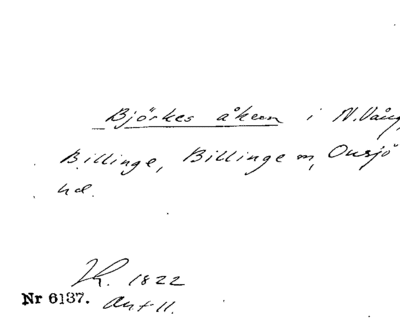 Björkes åkern i N. Vång,
Billinge, Billinge m, Onsjö
hd.
Lh. 1822
Nr 6137. Ant 11.